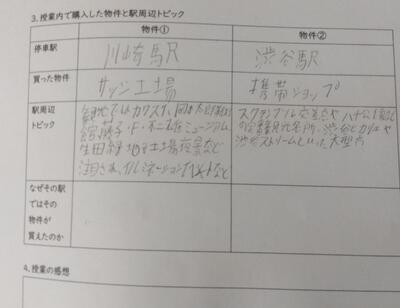 3.授業内で購入した物件と駅周辺トピック
物件① 物件②
停車駅 川崎駅 渋谷駅
買った物件 サッシ工場 携帯ショップ
駅周辺
トピック
観光ではカワスイ、岡本太郎美術
館、藤子・F・不二雄ミュージアム、
生田緑地、工場夜景など
注目され、イルミネーション など
スクランブル交差点や ハチ公
の 観光名所、渋谷ヒカリエや
渋谷ストリームといった大型
なぜその駅
ではその
物件が
買えたのか
4.授業の感想